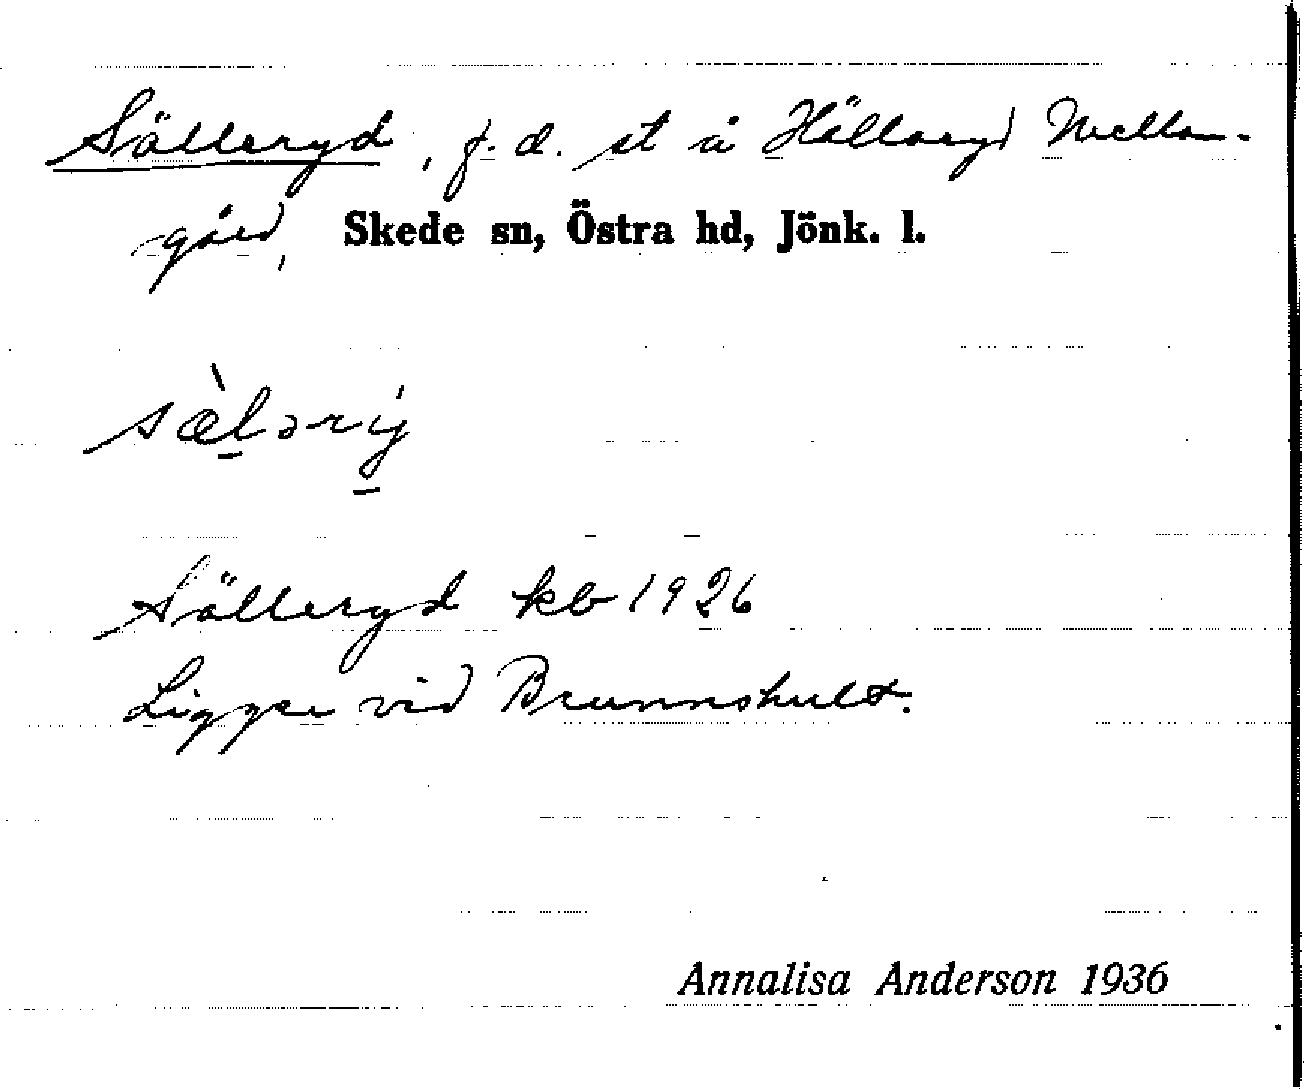 Sälleryd, f. d. st å Hällaryd Mellan-
gård, Skede sn, Östra hd, Jönk. l.
sæ̀lərý
Sälleryd kb 1926
Ligger vid Brunnshult.
Annalisa Anderson 1936